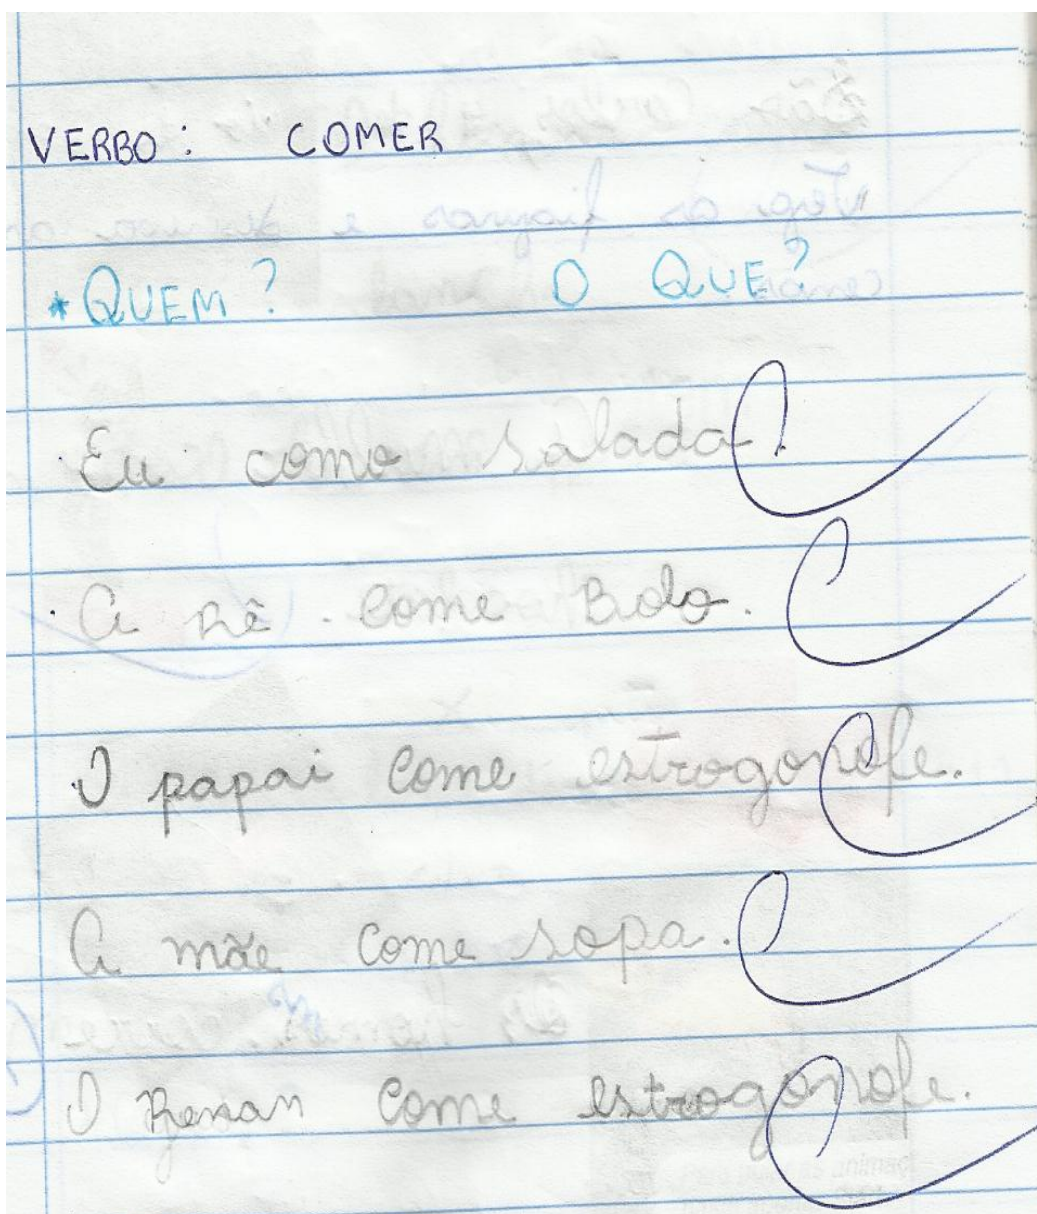 VERBO: COMER
* QUEM? O QUE?
Eu como salada.
A Rê come Bolo.
O papai come estrogonofe.
A mãe come sopa.
O Renan come estrogonofe.